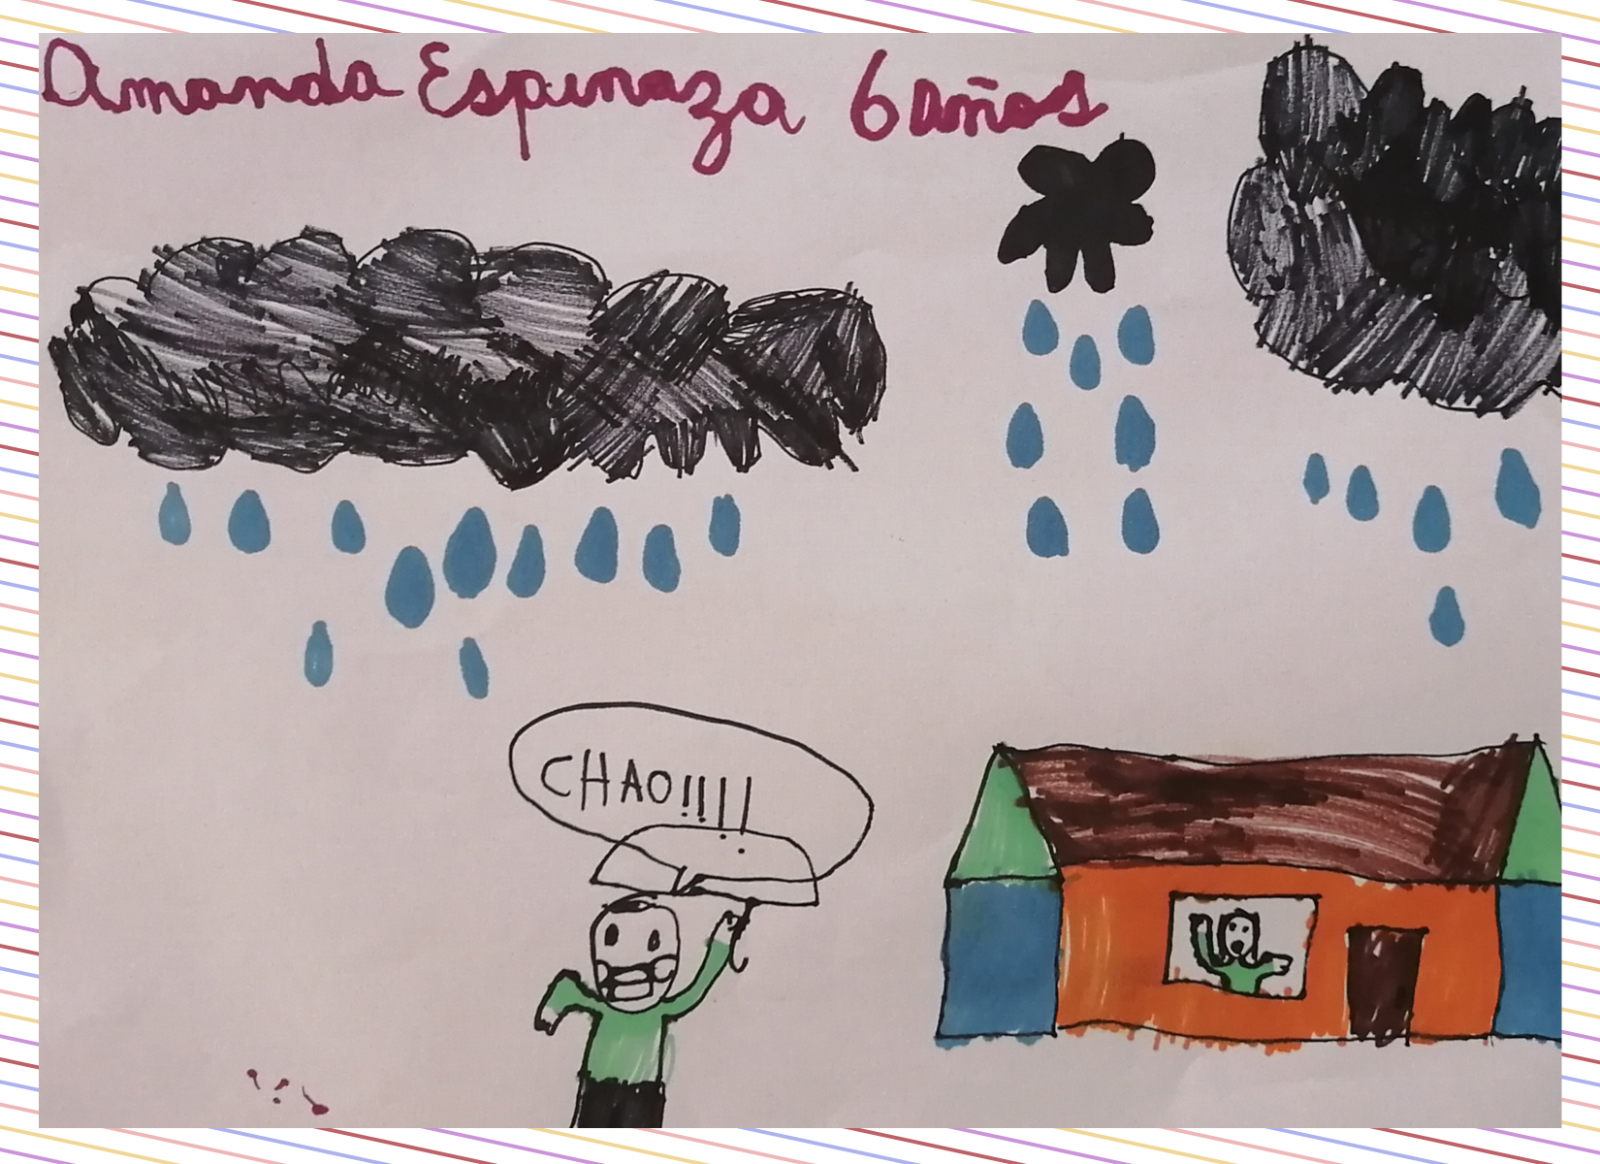 Amanda Espinaza 6 años
CHAO!!!!